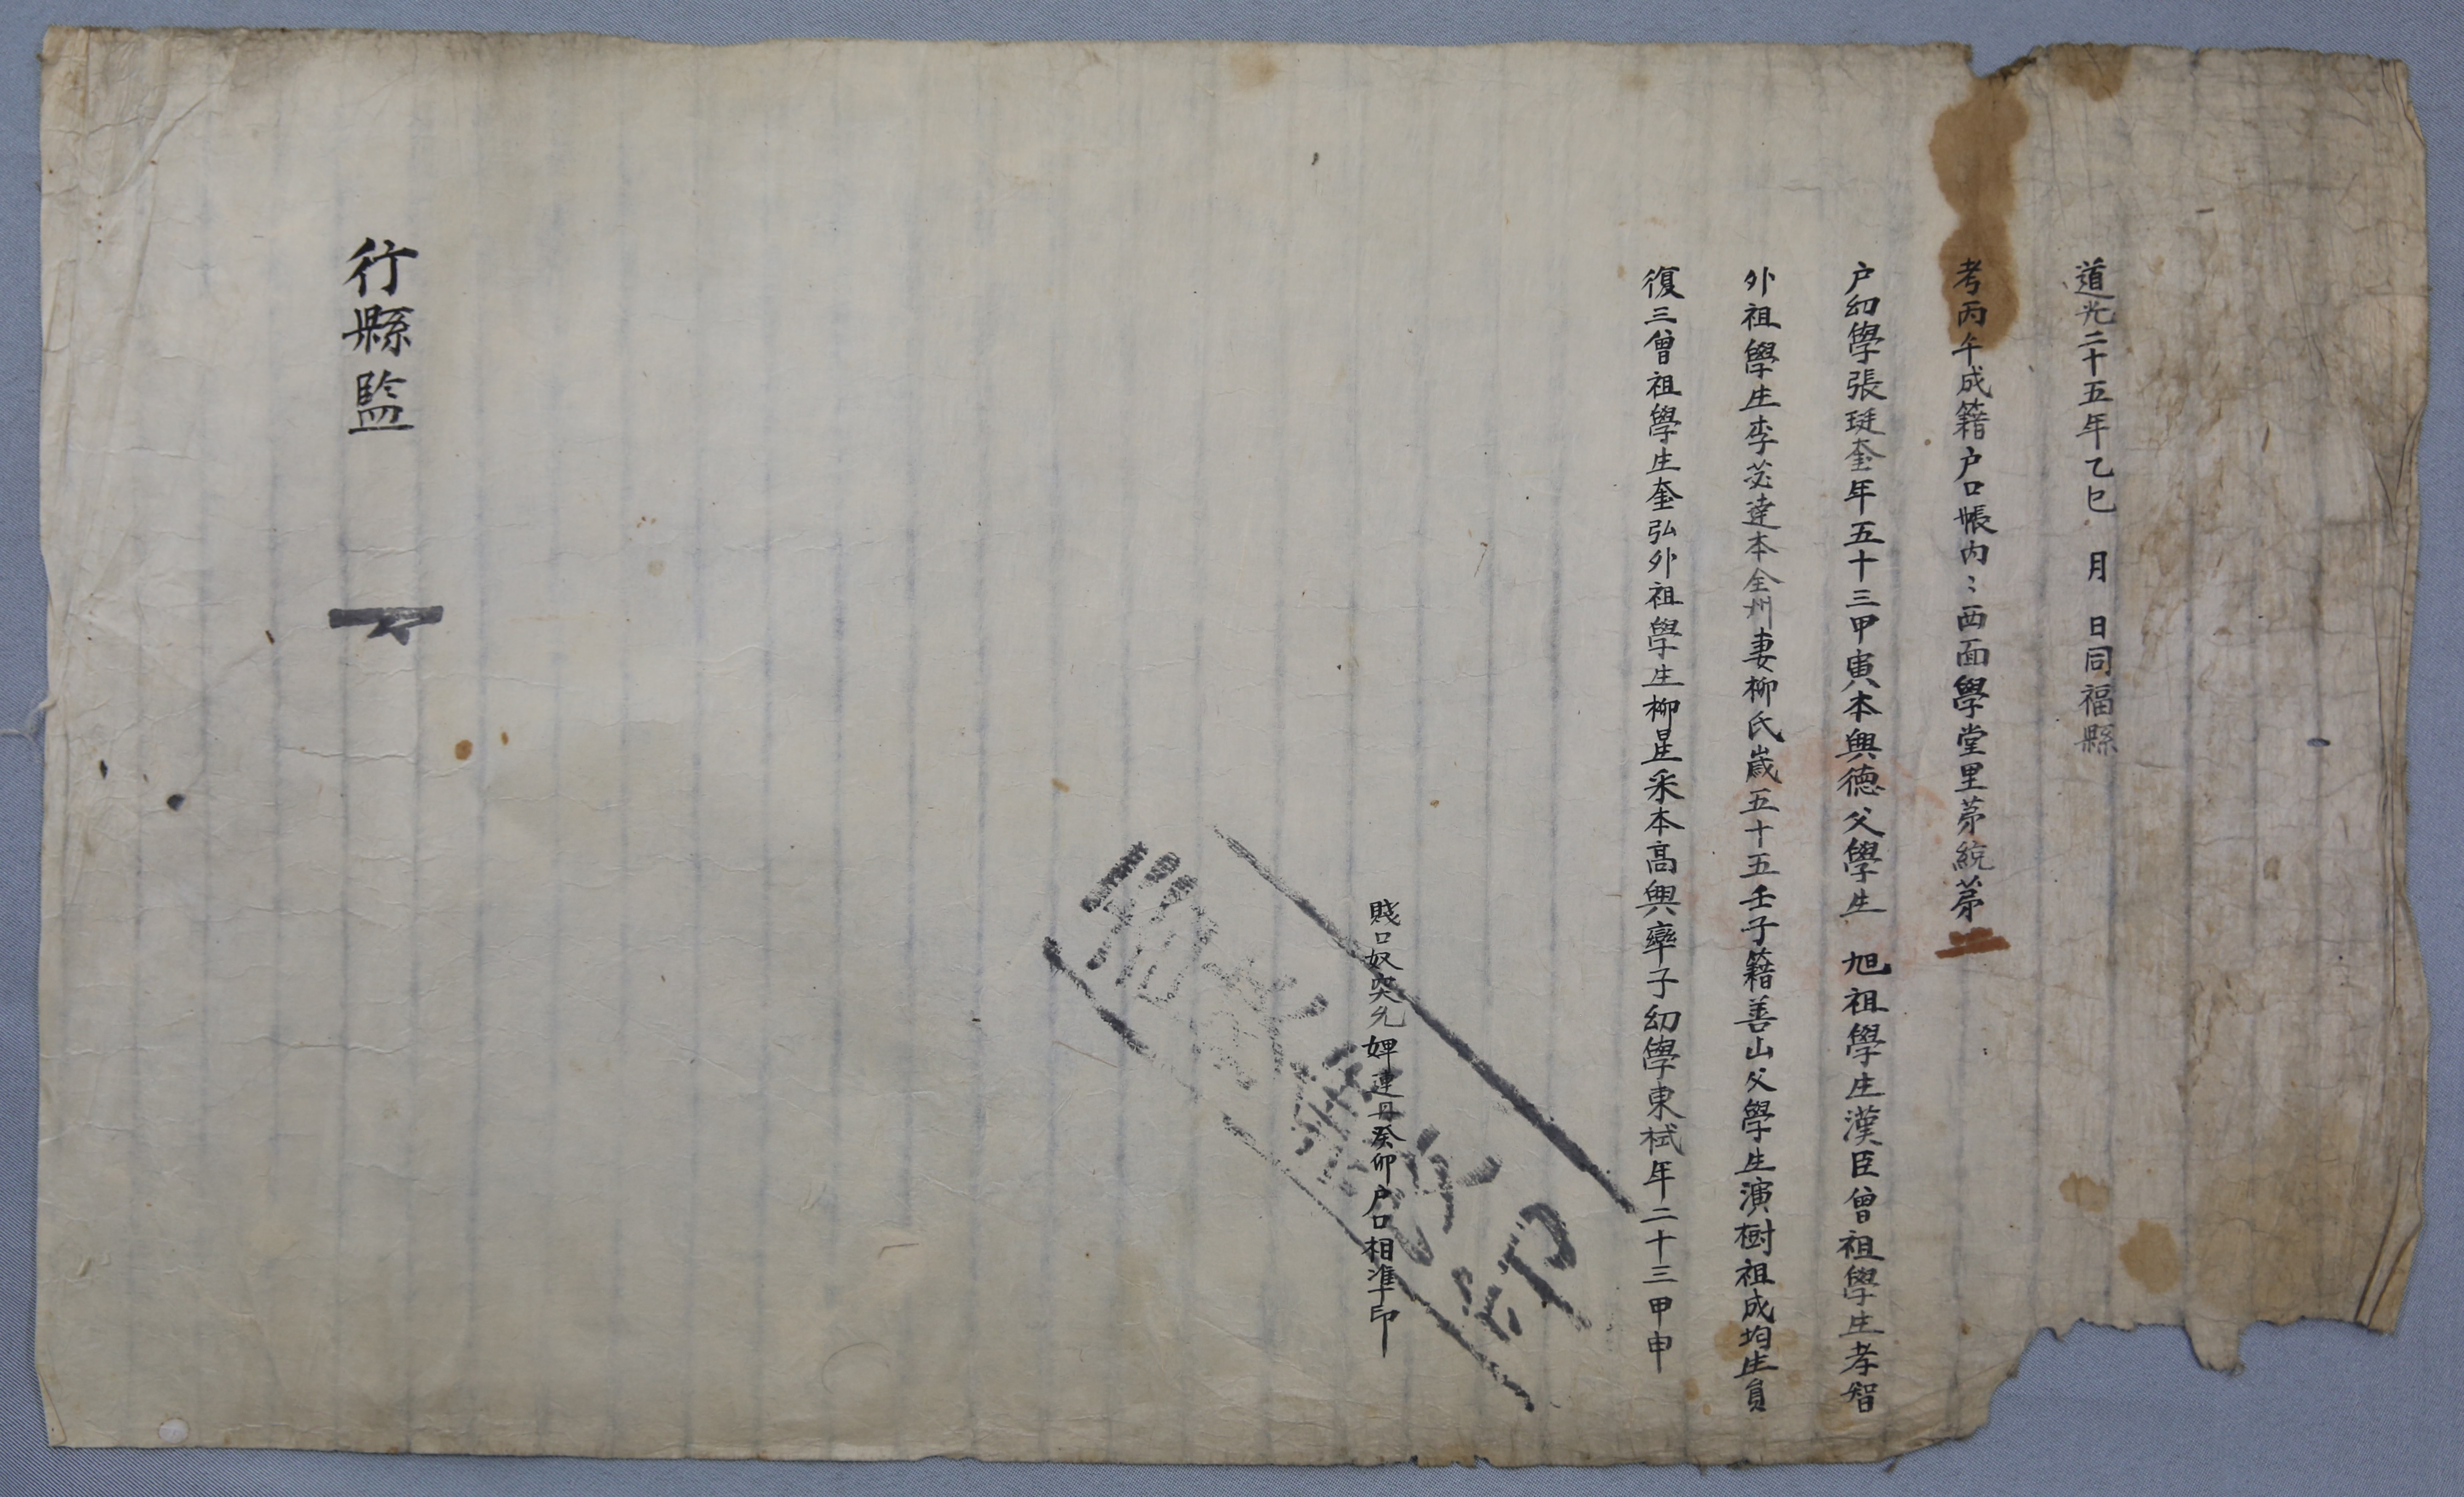 道光二十五年乙巳 月 日同福縣
考丙午成籍户口帳內〻西面學堂里苐統苐
户幼學張珽奎年五十三甲寅本興德父學生 旭祖學生漢臣曾祖學生孝智
外祖學生李苾達本全州妻柳氏歲五十五壬子籍善山父學生演樹祖成均生員
復三曾祖學生奎弘外祖學生柳星采本高興率子幼學東栻年二十三甲申
賤口奴突允婢連丹癸卯户口相準印
行縣監
印